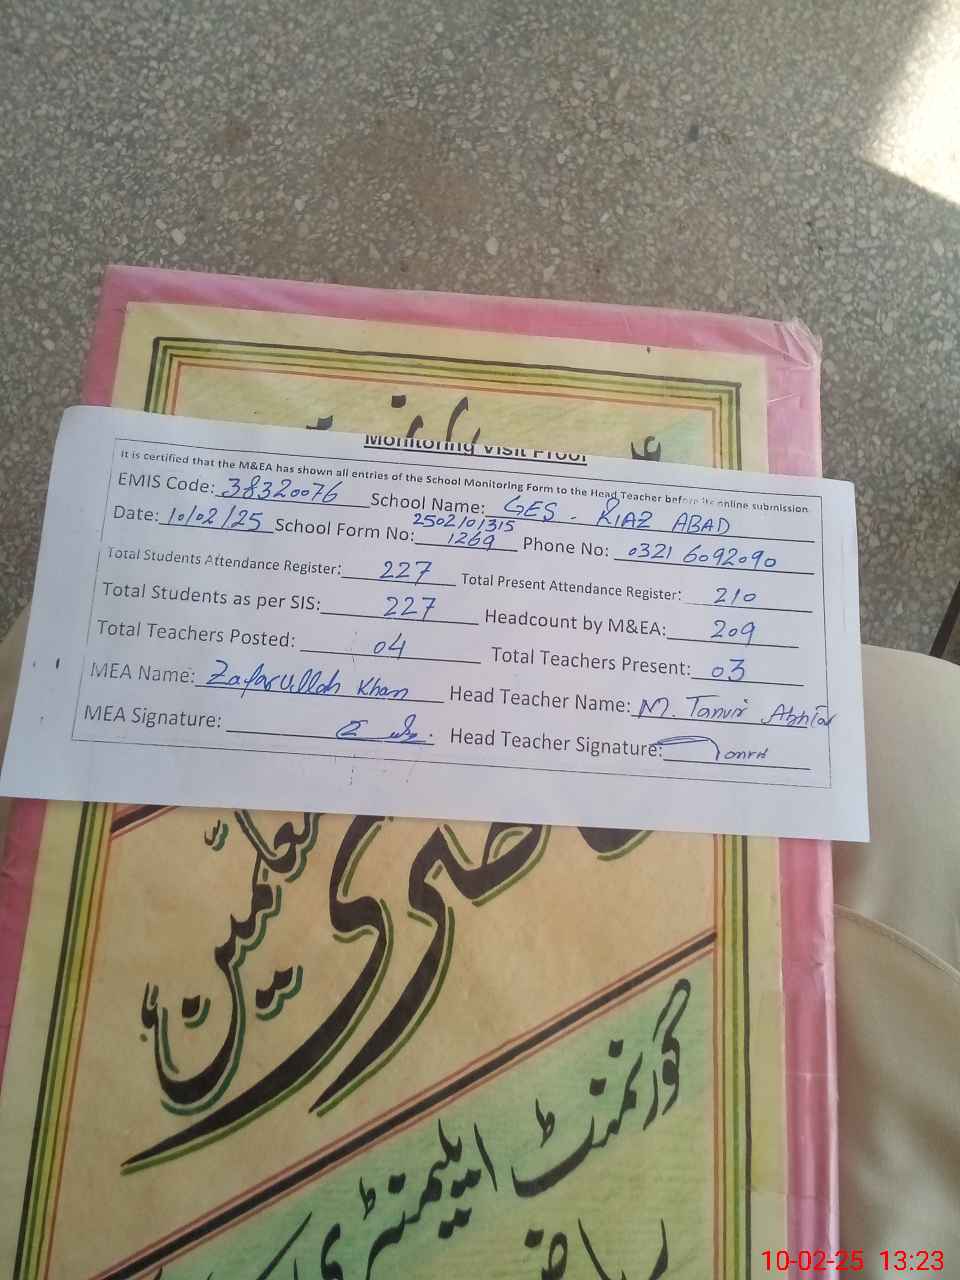 Monitoring Visit Proof
It is certified that the M&EA has shown all entries of the School Monitoring Form to the Head Teacher before its online submission.
EMIS Code: 38320076 School Name: GES - RIAZ ABAD
Date: 10/02/25 School Form No: 2502101315 1269 Phone No: 0321 6092090
Total Students Attendance Register: 227 Total Present Attendance Register: 210
Total Students as per SIS: 227 Headcount by M&EA: 209
Total Teachers Posted: 04 Total Teachers Present: 03
MEA Name: Zafarullah Khan Head Teacher Name: M. Tanvir Akhtar
MEA Signature: Head Teacher Signature:
معلمین
گورنمنٹ ایلیمنٹری
10-02-25 13:23